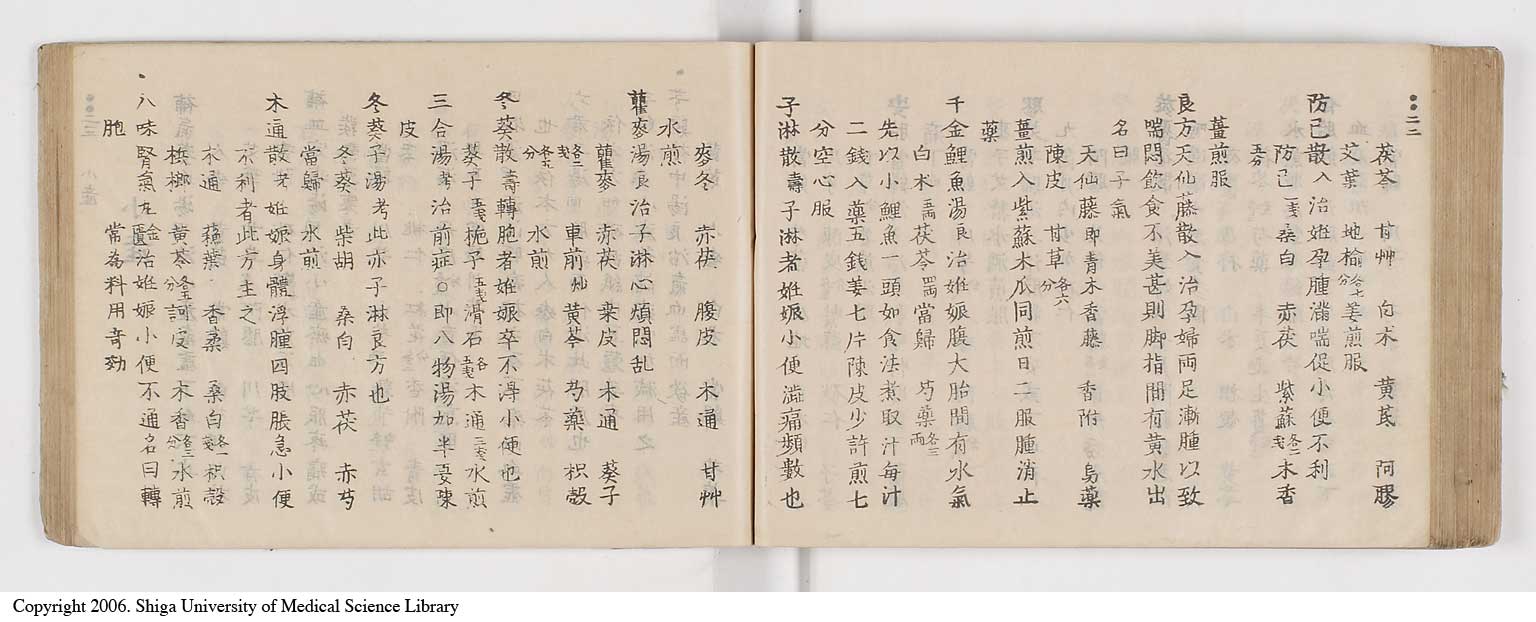 二二
茯苓 甘艸 白朮 黃芪 阿膠
艾葉 地榆各七分 姜煎服
防己散入 治姙孕腫滿喘促小便不利
防己一戔 桑白 赤茯 紫蘇各二戔 木香
五分
薑煎服
良方天仙藤散入 治孕婦兩足漸腫以致
喘悶飲食不美甚則脚指間有黃水出
名曰子氣
天仙藤即青木香藤 香附 烏藥
陳皮 甘草各六分
薑煎入紫蘇木瓜同煎日二服腫消止
藥
千金鯉魚湯良 治姙娠腹大胎間有水氣
白木五兩 茯苓四兩 當歸 芍藥各三兩
先以小鯉魚一頭如食法煮取汁每汁
二錢入藥五錢姜七片陳皮少許煎七
分空心服
子淋散壽 子淋者姙娠小便澁痛頻數也
麥冬 赤茯 腹皮 木通 甘艸
水煎
瞿麥湯良 治子淋心煩悶乱
瞿麥 赤茯 桑皮 木通 葵子
各二戔 車前艸 黃芩 芍藥 枳殼
各五分 水煎
冬葵散壽 轉胞者姙娠卒不淂小便也
葵子五戔 梔子五戔 滑石各五戔 木通三戔 水煎
三合湯考 治前症○即八物湯加半夏陳
皮
冬葵子湯考 此亦子淋良方也
冬葵 柴胡 桑白 赤茯 赤芍
當歸 水煎
木通散考 姙娠身體浮腫四肢脹急小便
不利者此方主之
木通 蘓葉 香柔 桑白各一戔 枳殼
檳榔 黃芩各五分 訶皮 木香各三分 水煎
八味腎氣丸金匱 治姙娠小便不通名曰轉
胞 常為料用竒効